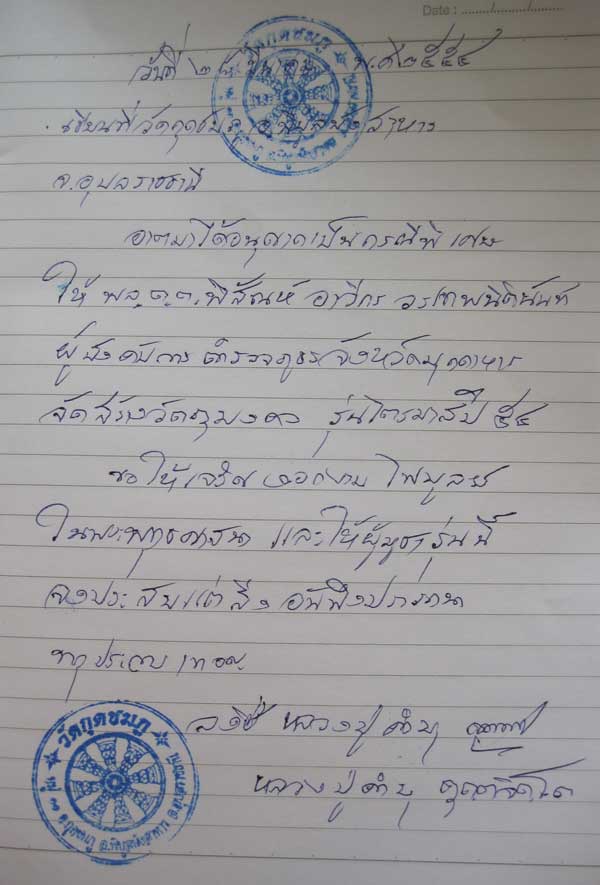 Date : ......../......../........
วันที่ ๒๘ มีนาคม พ.ศ ๒๕๕๔
เขียนที่วัดกุดชมภู อ.พิบูลมังสาหาร
จ.อุบลราชธานี
อาตมาได้อนุญาตเป็นกรณีพิเศษ
ให้ พล.ต.ต.พิสัณห์ อาวีกร วรเทพนิตินันท์
ผู้บังคับการตำรวจภูธรจังหวัดมุกดาหาร
จัดสร้างวัตถุมงคล รุ่นไตรมาสปี ๕๔
ขอให้เจริญงอกงาม ไพบูลย์
ในพระพุทธศาสนา และให้ผู้บูชารุ่นนี้
จงประสบแต่สิ่งอันพึงปรารถนา
ทุกประการ เทอญ
ลงชื่อ หลวงปู่คำบุ
หลวงปู่คำบุ คุตฺตจิตฺโต
วัดกุดชมภู
วัดกุดชมภู